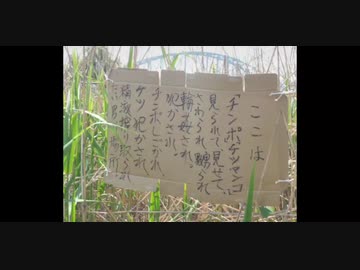 ここは
「チンポ、ケツマンコ
見られて見せて、
さわられ、嬲られ
輪姦され、
犯され、
チンポしごかれ、
ケツ犯かされ、
精液搾り取られ